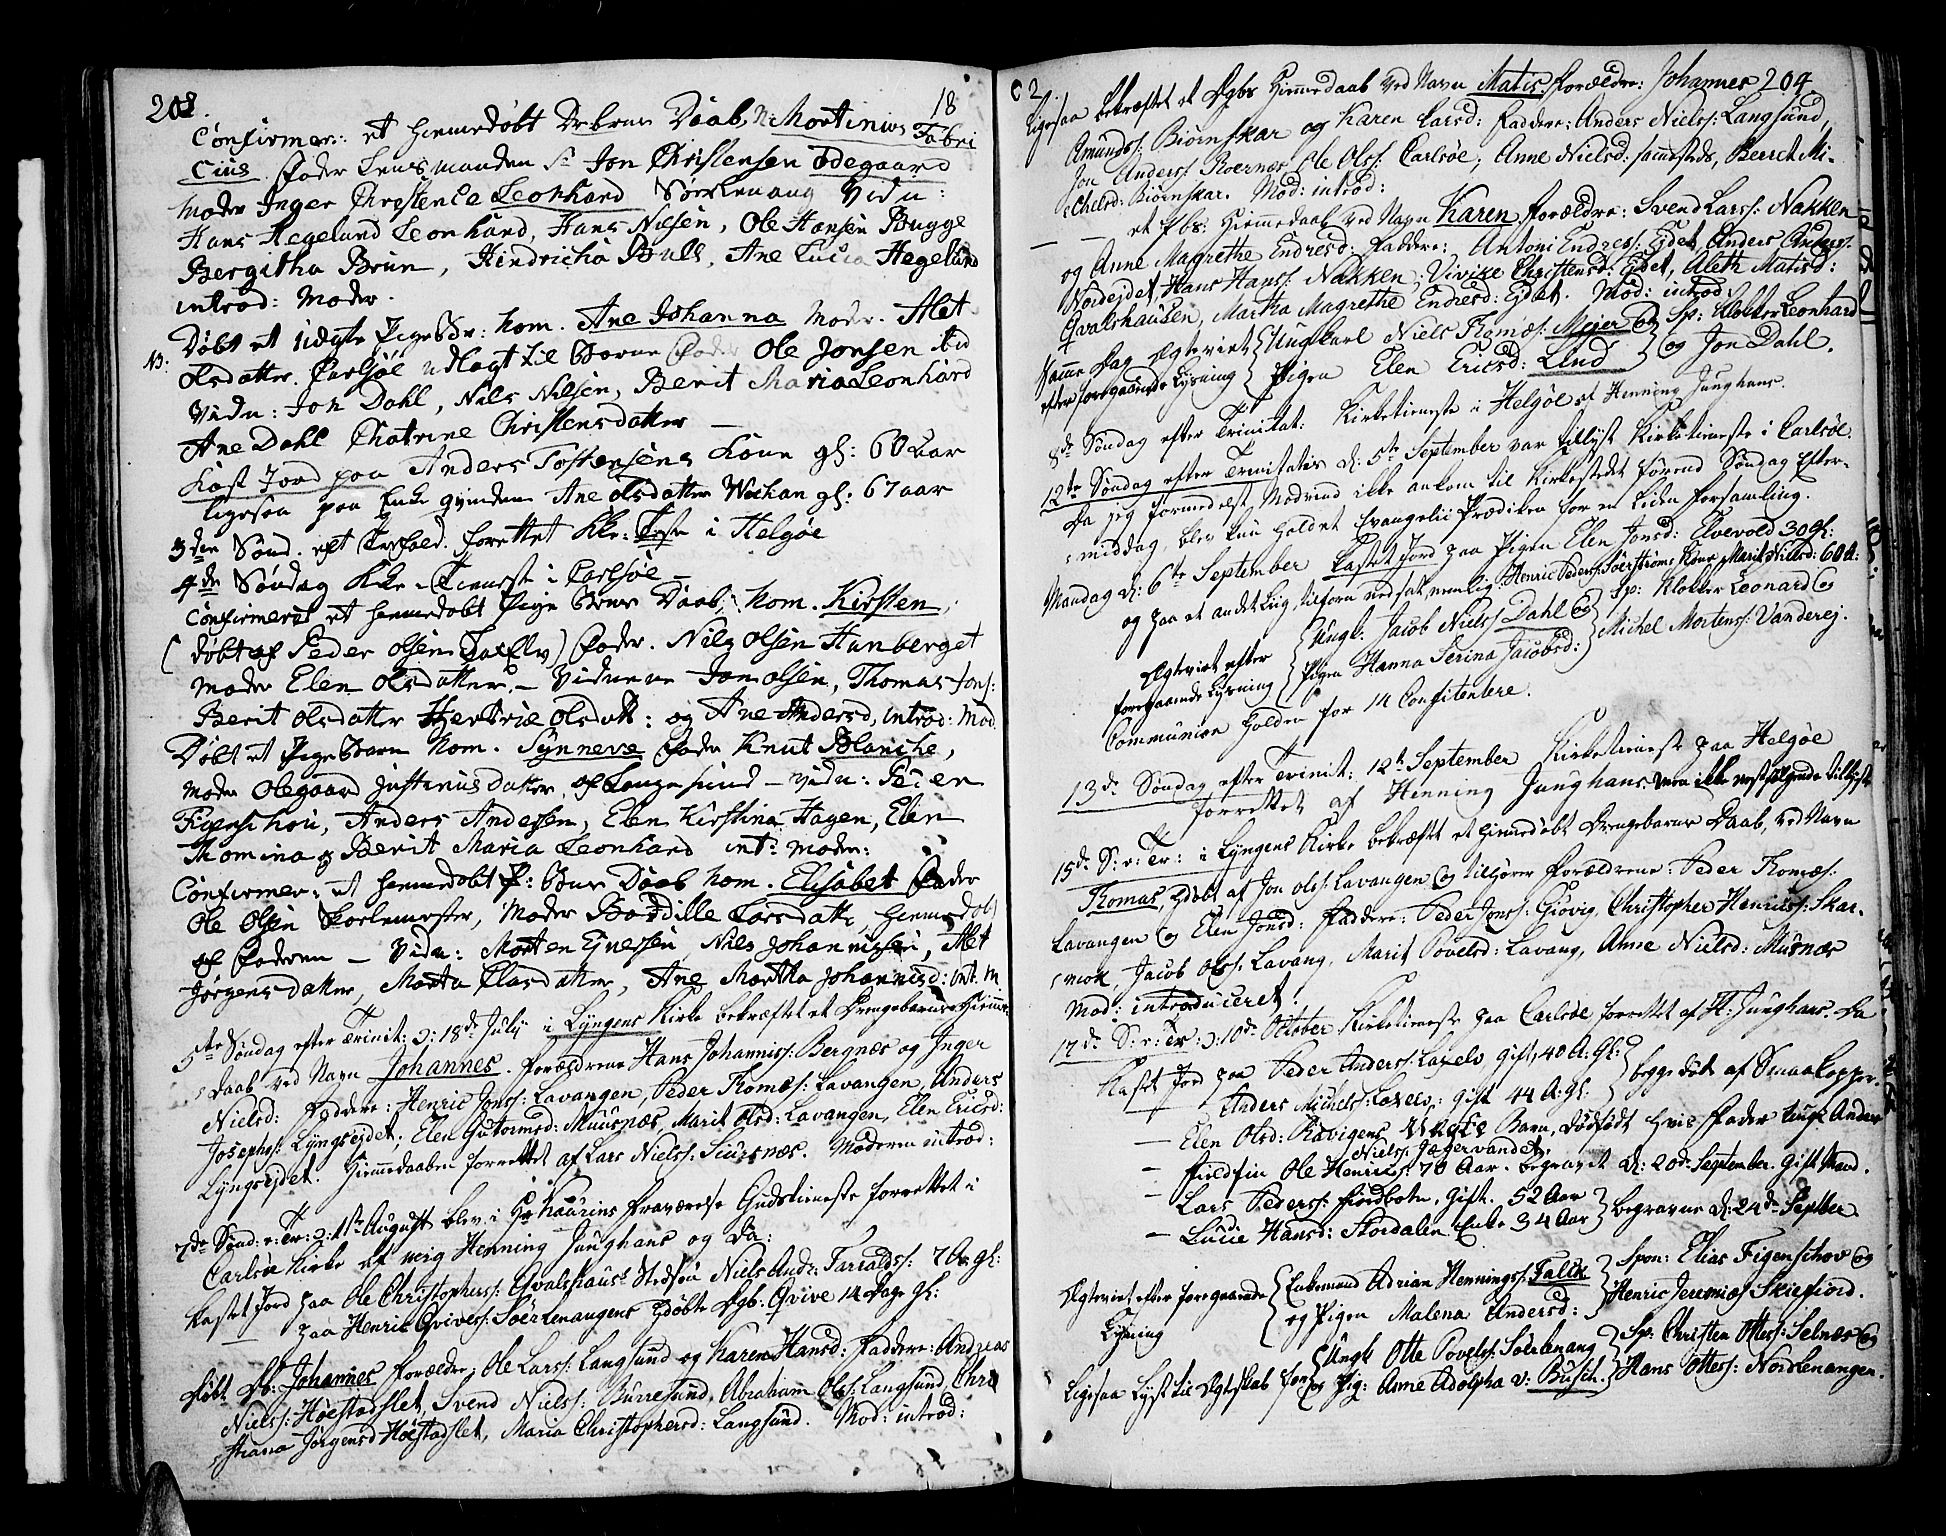 202.
18
Confirmer: et hiemedøbt Drbrns Daab, N: Mortinius Fabri
cius. Fader Lensmanden Sr Jon Christensen Ødegaard
Moder Inger Christence Leonhard Sørlenang Vidn:
Hans Hegelund Leonhard, Hans Nilsen, Ole Hansen Bugge
Bergitha Brun, Hindricha Bull, Ane Lucia Hegelund
introd: Moder.
Døbt et Uægte Pigebr: Nom. Ane Johanna Modr. Alet
Olsdatter. Carlsøe udlagt til Barne Fader Ole Jonsen ibid
Vidn: Jon Dahl, Nils Nilsen, Berit Maria Leonhard
Ane Dahl Chatrine Christensdatter —
Kast Jord paa Anders Tostensens Kone gl: 60 aar
ligesaa paa Enke qvinden Ane Olsdatter gl: 67 aar
3die Sønd. eft Trefold. forettet Kke: Teste i Helgøe
4de Søndag Kke-Tieneste i Carlsøe —
Confirmeret et hiemedøbt Pige Børns Daab, Nom. Kirsten,
(døbt af Peder Olsen Laxelv) Fader. Nils Olsen Hanberget
Moder Elen Olsdatter. — Vidnerne Jon Olsen, Thomas Jons:
Berit Olsdatter Olsdatt: og Ane Andersd, introd: Mod
Døbt et Pige Barn Nom. Synneve Fader Knut Blanche,
Moder Olegaard Justinusdatter, af Langesund — Vidn: Peder
Figenschou, Anders Andersen, Elen Kirstina Hagen, Elen
Thomina og Berit Maria Leonhard int: Moder:
Confirmer: et hiemedøbt P: Børns Daab Nom. Elisabet Fader
Ole Olsen Skolemester, Moder Bodille Larsdatt, hiemedøbt
af Faderen — Vidn: Morten Ejnersen, Nils Johannissen, Alet
Jørgensdatter, Marta Clasdatter, Ane Martha Johannisd: int. M
5te Søndag efter Trinit: ɔ: 18de July i Lyngens Kirke bekræftet et Drengebarns Hiemme
Daab ved Navn Johannes. Forældrene Hans Johanniss: Bergnæs og Inger
Nielsd: Faddere: Henric Jonss: Lavangen, Peder Thomæs: Lavangen, Anders
Josephss: Lyngsejdet; Elen Gutormsd: Muusnæs, Marit Olsd: Lavangen, Elen Ericsd:
Lyngsejdet. Hiemmedaaben forrettet af Lars Nielss: Siursnæs. Moderen introd:
7de Sønd: e: Tr: ɔ: 1ste August blev i Hr Kaurins Fraværelse Gudstieneste forrettet i
Carlsøe Kirke af mig Henning Junghans og da:
Kastet Jord paa Ole Christophers: Qvalshaus: Niels Andr: Farralds: 70 gl:
— paa Henric Qvives: Sørlenangens Hdøbte Dgb: Qvive 14 Dage gl:
Døbt Db: Johannes Forældre: Ole Larss: Langsund og Karen Hansd: Faddere: Andreas
Nielss: Høestadslet, Svend Nielss: Burresund, Abraham Olss: Langsund, Chri
stiana Jørgensd Høestadslet, Maria Christophersd: Langsund. Mod: introd:
204
Ligesaa bekræftet et Dgbs Hiemmedaab ved Navn Matis. Forældre: Johannes
Amunds: Biørnskar og Karen Larsd: Faddere: Anders Nielss: Langsund,
Jon Anderss: Ole Olss: Carlsøe; Anne Nielsd: sammesteds, Berret Mi-
chelsd: Biørnskar. Mod: introd:
— — et Pbs: Hiemmedaab ved Navn Karen Forældre: Svend Larss: Nakken
og Anne Magrethe Endresd: Faddere: Antoni Endress: Ejdet, Anders Anderss:
Nordejdet, Hans Hanss: Nakken, Vivike Christensd: Ejdet, Aleth Matisd:
Qvalshausen, Martha Magrethe Endresd: Ejdet. Mod: introd:
Samme Dag Ægteviet Ungkarl Niels Thomæs: Mejer og Sp: Klokker Leonhard
efter foregaaende Lysning Pigen Elen Ericsd: Lind og Jon Dahl.
8de Søndag efter Trinitat: Kirketieneste i Helgøe af Henning Junghans.
12te Søndag efter Trinitatis d: 5te September var tillyst Kirketieneste i Carlsøe.
Da jeg formedelst Modvind ikke ankom til Kirkestedet førend Søndag Efter-
middag, blev kun holdet Evangelii Prædiken for en liden Forsamling.
Mandag d: 6te September Kastet Jord paa Pigen Elen Jonsd: Elvevold 30 gl:
og paa et andet Liig, tilforn nedsat, nemlig: Henric Peders: Söerströms Kone Marit Nielsd: 60 A:
Ægteviet efter Ungk: Jacob Nielss Dahl og Sp: Klokker Leonard og
foregaaende Lysning Pigen Hanna Serina Jacobsd: Michel Mortens: Vanderej.
Communion holden for 14 Confitentere.
13de Søndag efter Trinit: 12te September Kirketieneste paa Helgøe
forrettet af Henning Junghans. men ikke næstfølgende tillyst
15de S: e: Tr: i Lyngens Kirke bekræftet et hiemedøbt Drengebarns Daab, ved Navn
Thomas, Hdøbt af Jon Olss: Lavangen og tilhører Forældrene: Peder Thomæs:
Lavangen og Elen Jonsd: Faddere: Peder Jonss: Giøvig, Christopher Henricss: Skar-
mok, Jacob Olss: Lavang, Marit Povelsd: Lavang, Anne Nielsd: Musnæs
Mod: introduceret.
17de S: e: Tr: ɔ: 10de October Kirketieneste paa Carlsøe forrettet af H: Junghans. Da
Kastet Jord paa Peder Anderss: Laxelv gift, 40 A: gl:
Anders Michels: Laxelv: gift 44 A: gl: begge døde af SmaaKopper.
— Elen Olsd: Uægte Barn, dødfødt hvis Fader Ungk Anders
Nielss: Jægervandet.
— Fieldfin Ole Henrics: 70 Aar. begravet d: 20de September. gift Mand.
— Lars Peders: Fiordbotn, gift. 52 Aar
— Lucie Hansd: Stordalen Enke 34 Aar begravne d: 24de Septber.
Ægteviet efter foregaaende Enkemand Adrian Hennings: Falck Spon: Elias Figenschov og
Lysning og Pigen Malena Andersd: Henric Jeremiæs Skiefiord.
Ligesaa lyst til Ægteskab for Ungk Otte Povels: Sørlenang Sp: Christen Ottes: Selnæs og
og Pig: Anne Adolpha v: Busch. Hans Ottes: Nordlenangen.